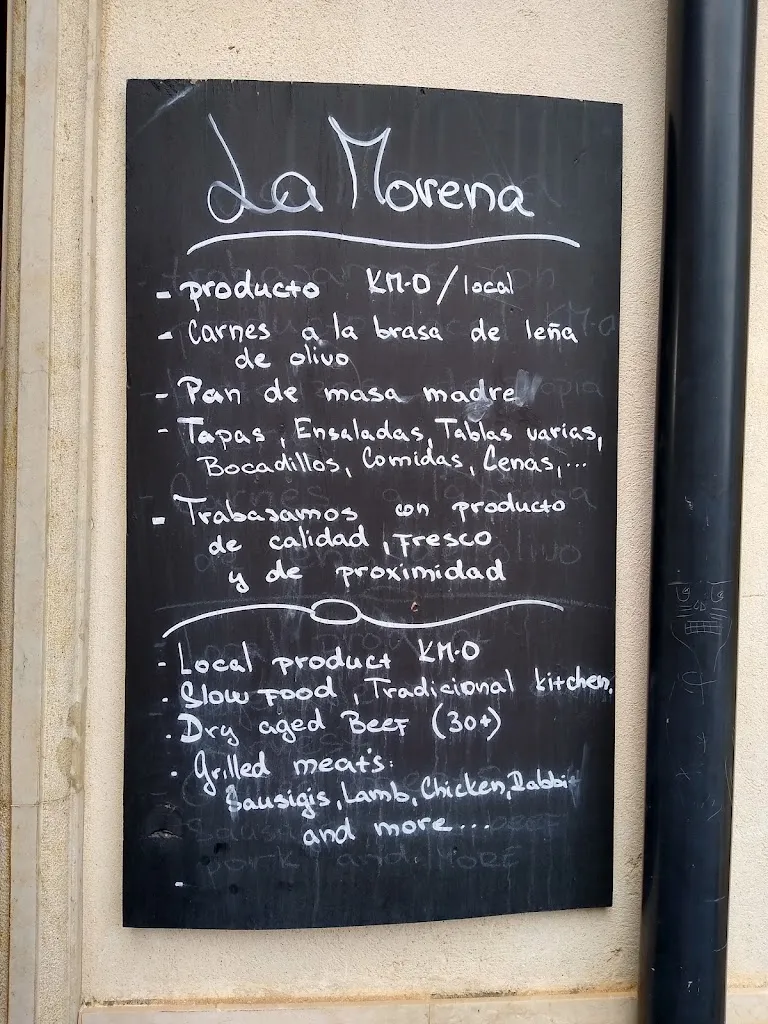 La Morena
- producto KM.0/local
- Carnes a la brasa de leña
de olivo
- Pan de masa madre
- Tapas, Ensaladas, Tablas varias,
Bocadillos, Comidas, Cenas,...
- Trabasamos con producto
de calidad, Fresco
y de proximidad
- Local product KM.0
. Slow Food, Tradicional kitchen,
. Dry aged Beef (30+)
. Grilled meat's:
Sausigis, Lamb, Chicken, Rabbit
and more...
-